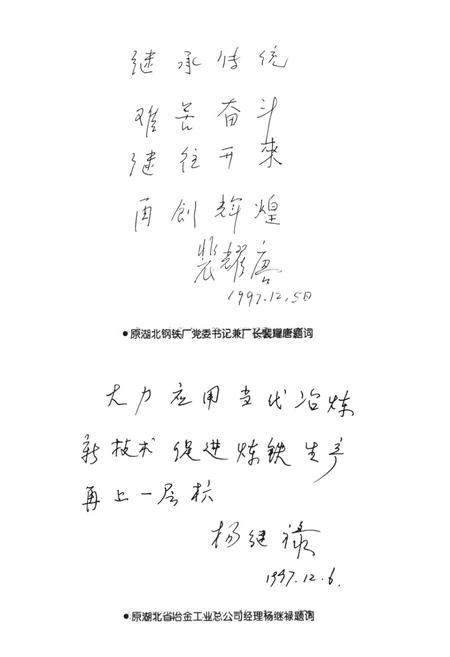 继承传统
难苦奋斗
继往开来
再创辉煌
裴耀唐
1997.12.5日
●原湖北钢铁厂党委书记兼厂长裴耀唐题词
大力应用当代冶炼
新技术促进炼铁生产
再上一层杦
杨继禄
1997.12.6.
●原湖北省冶金工业总公司经理杨继禄题词